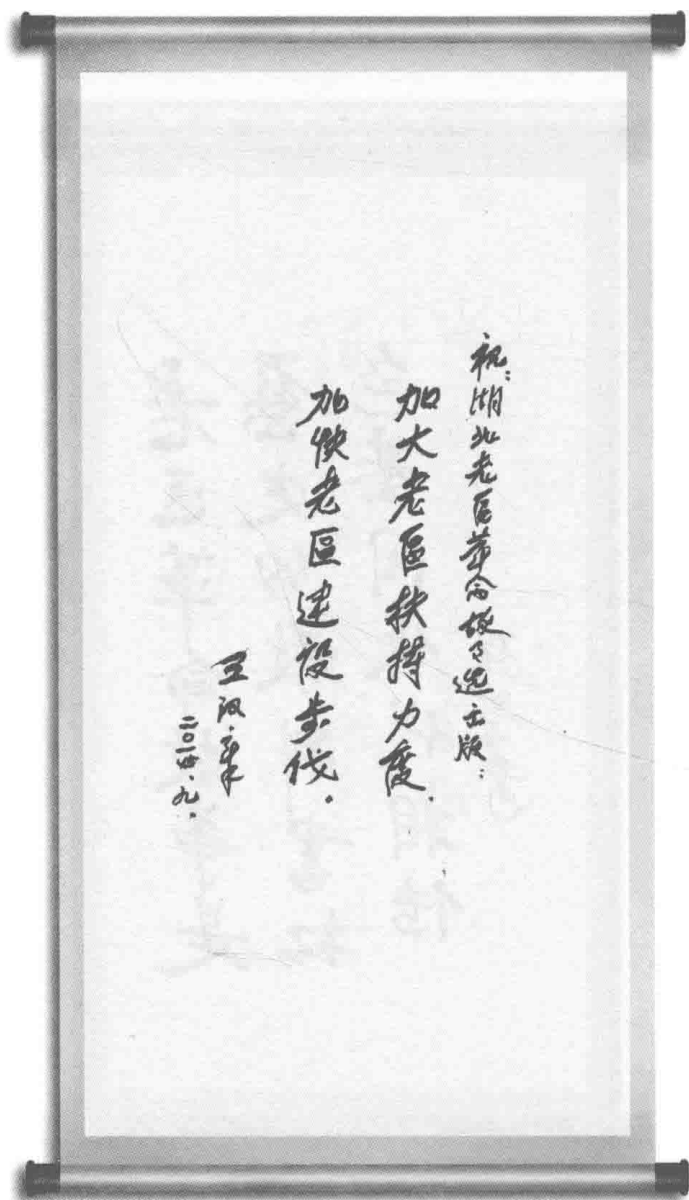 祝:湖北老区革命故事选出版:
加大老區扶持力度.
加快老區建设步伐.
王汉章
二〇一四、九.